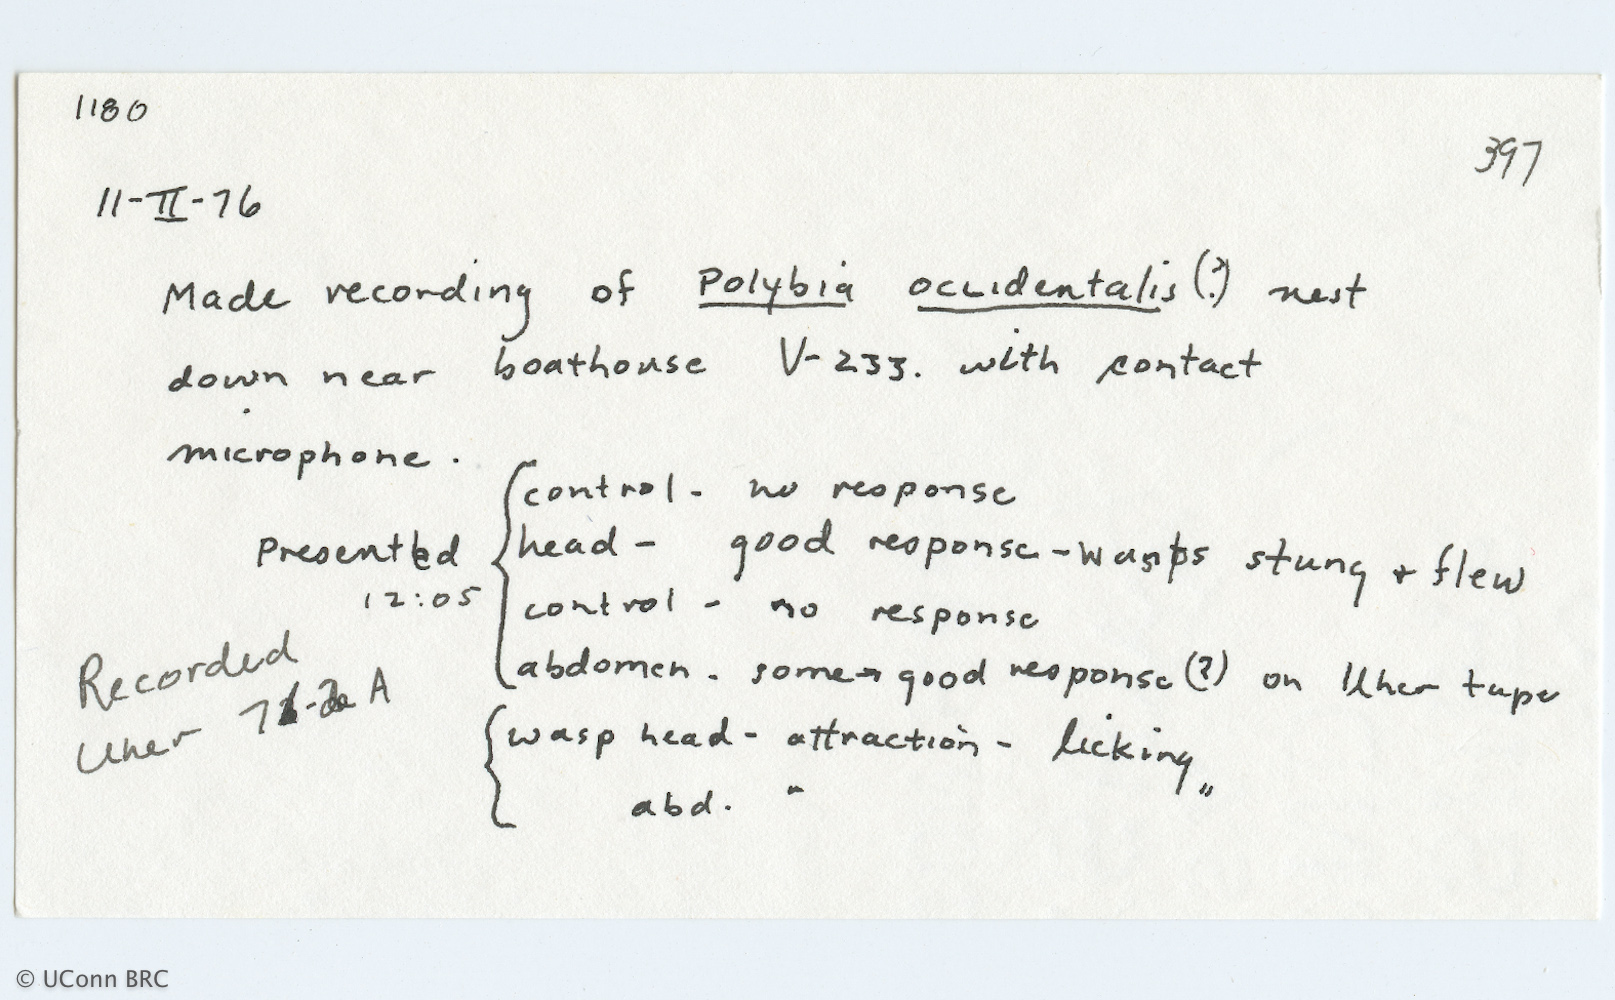 1180
397
11-II-76
Made recording of Polybia occidentalis (?) nest
down near boathouse V-233. with contact
microphone.
Presented
12:05
control - no response
head - good response - wasps stung + flew
control - no response
abdomen. some → good response (?) on Uher tape
Recorded
Uher A
wasp head - attraction - licking
abd. " "
© UConn BRC